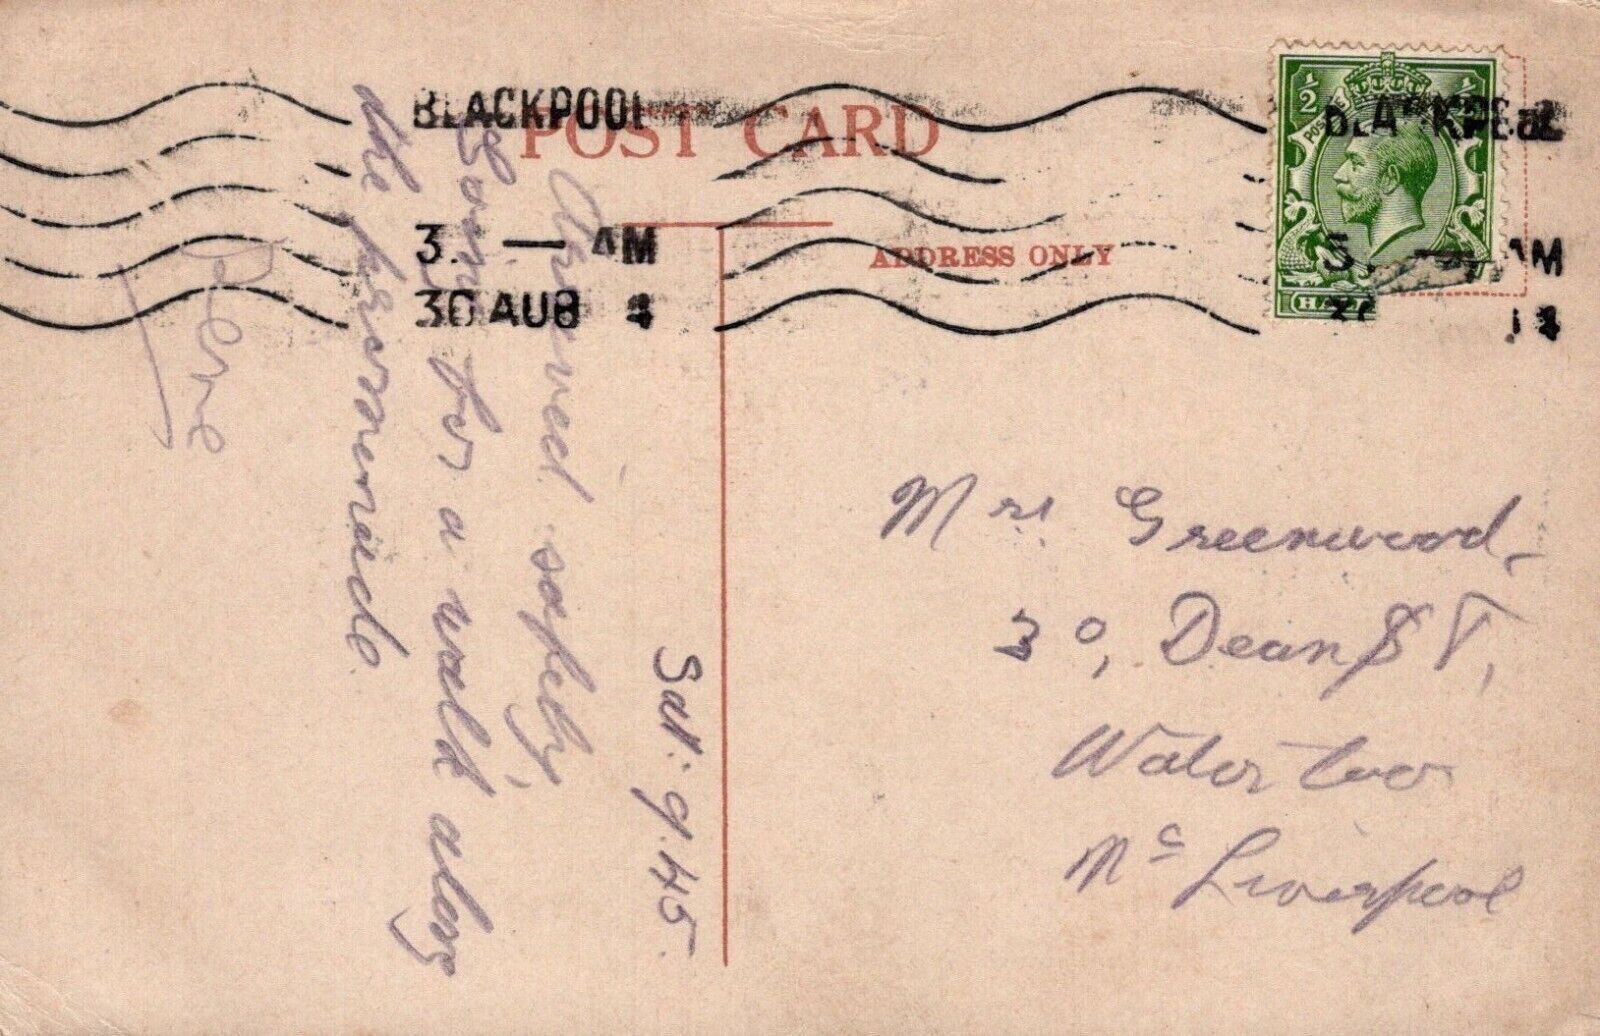 POST CARD
ADDRESS ONLY
BLACKPOOL
3. — AM
30 AUG 4
½ ½
Sat: 9.45.
Arrived safely,
Going for a walk along
the promenade.
Mrs. Greenwood,
30, Dean St,
Waterloo
Nr Liverpool